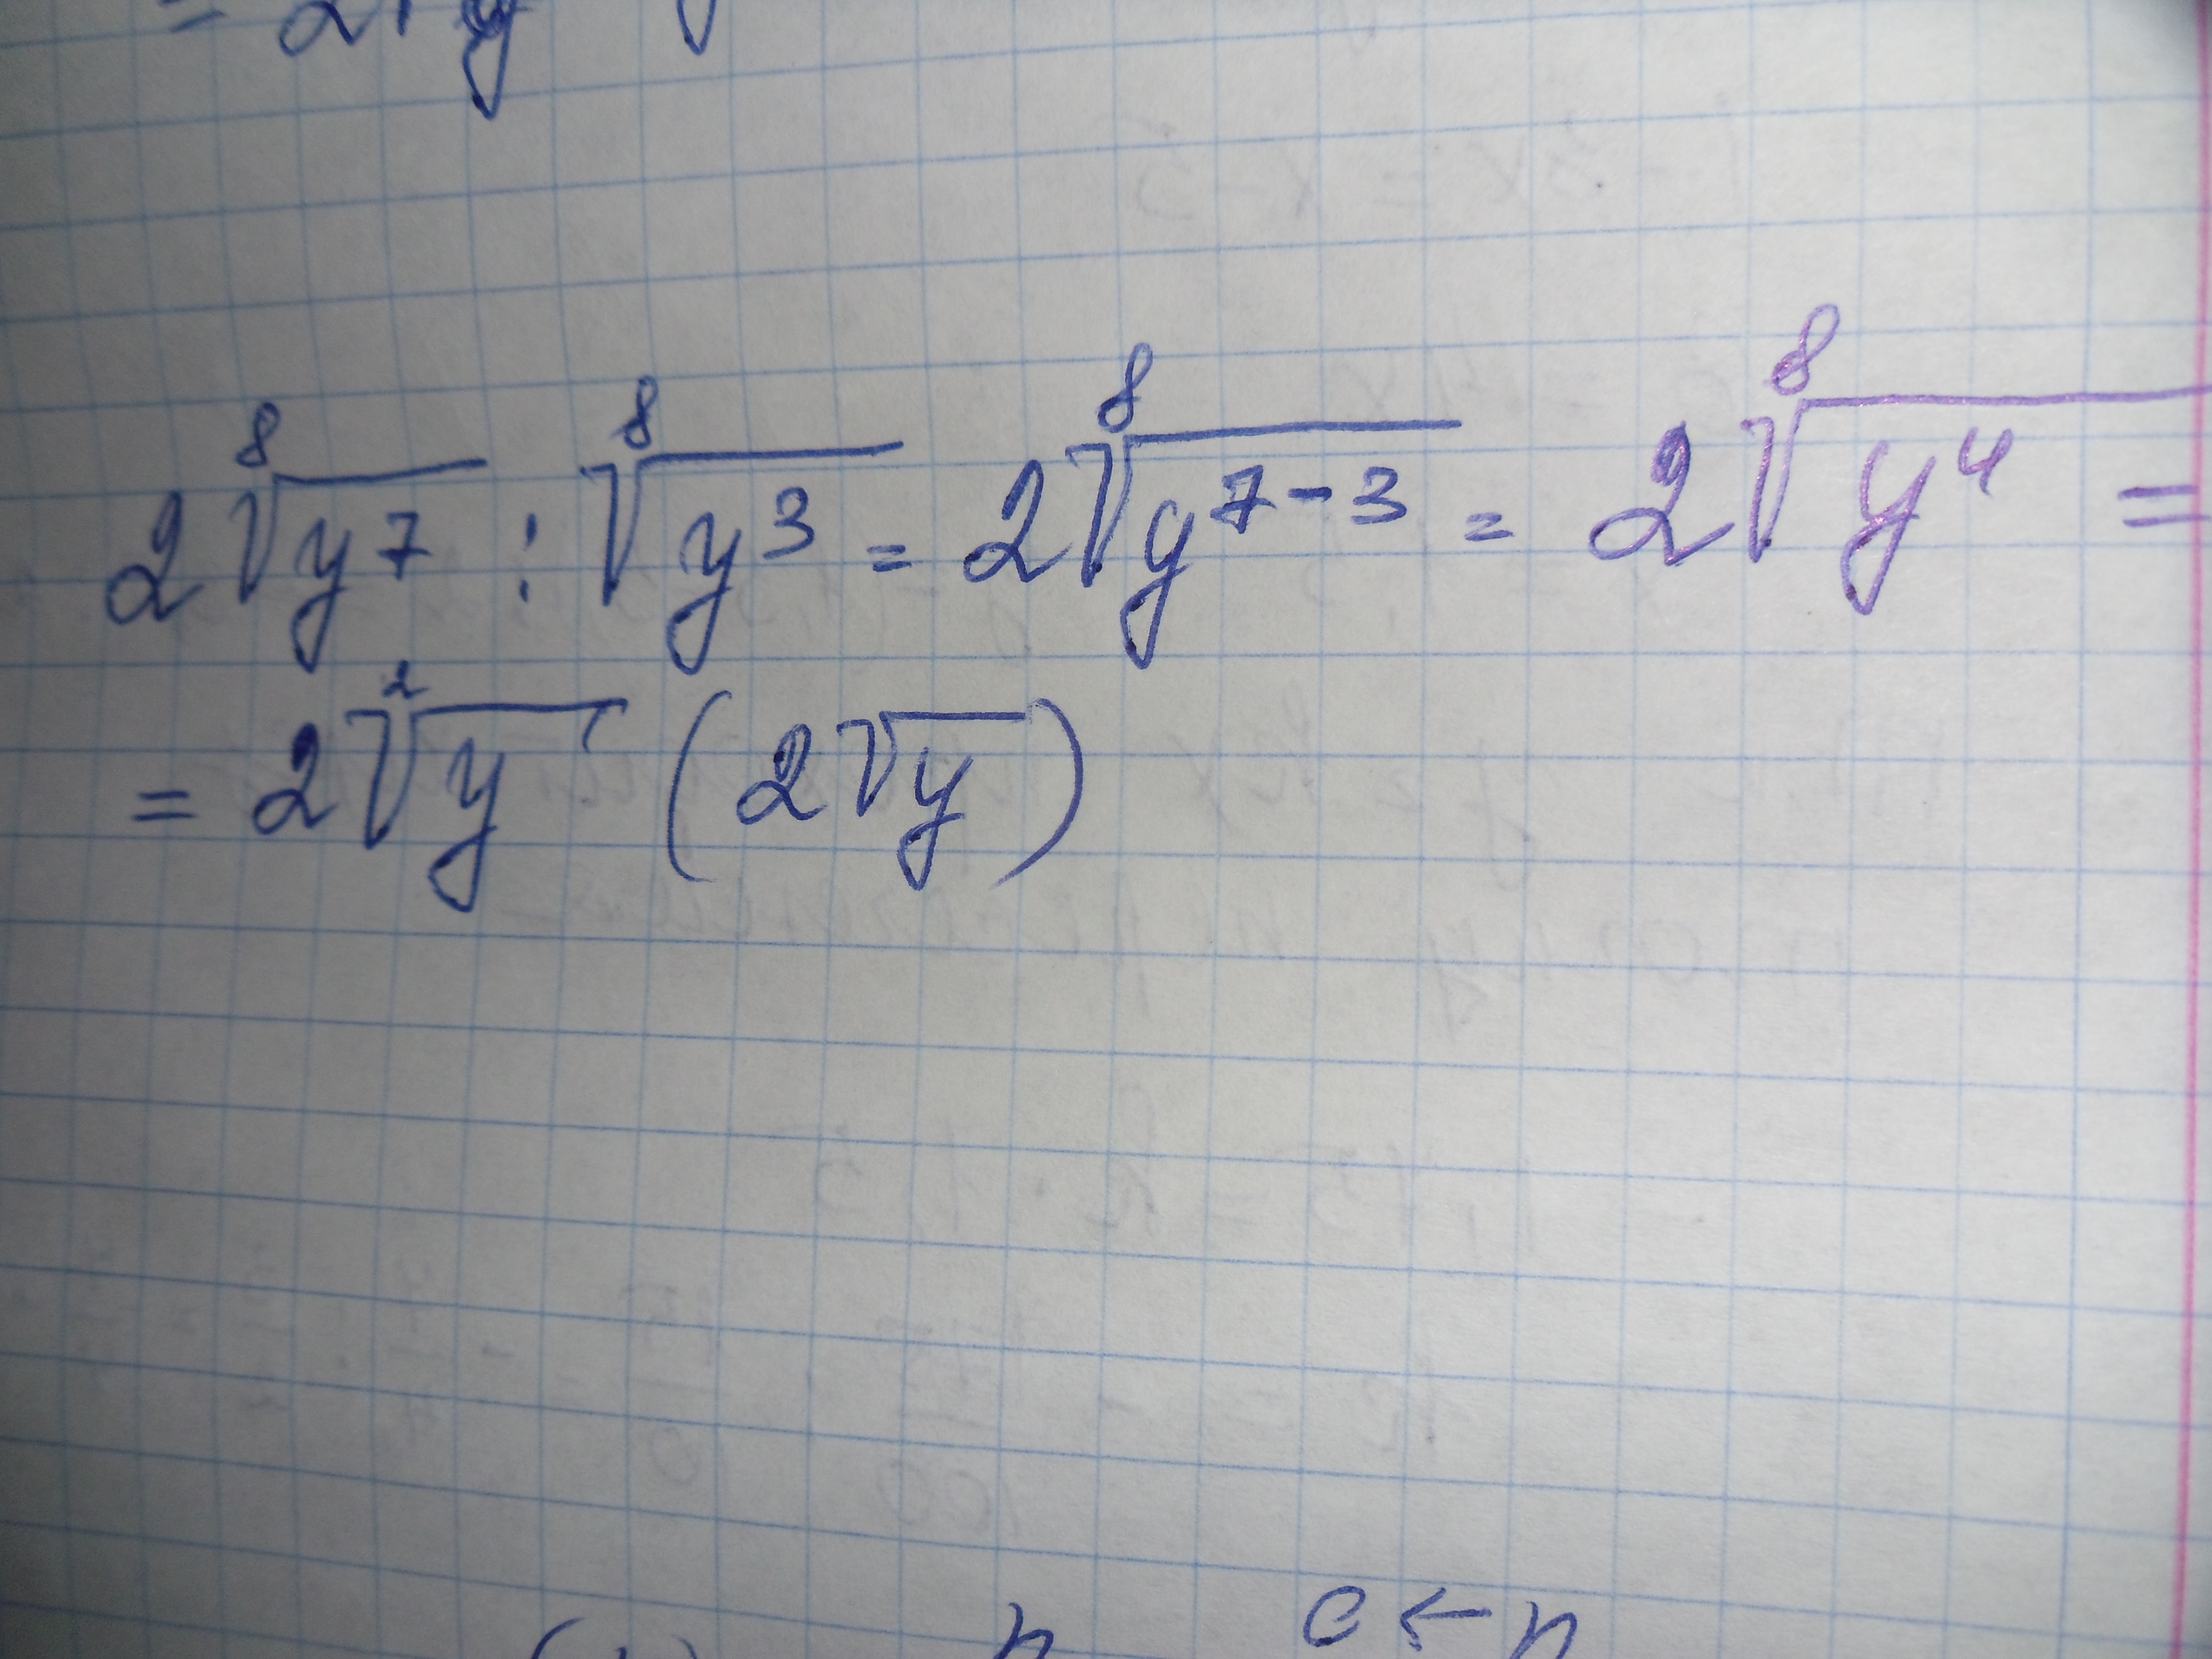 = 2
2 ⁸√y⁷ : ⁸√y³ = 2 ⁸√y⁷⁻³ = 2 ⁸√y⁴ =
= 2 ²√y (2√y)
c ← n